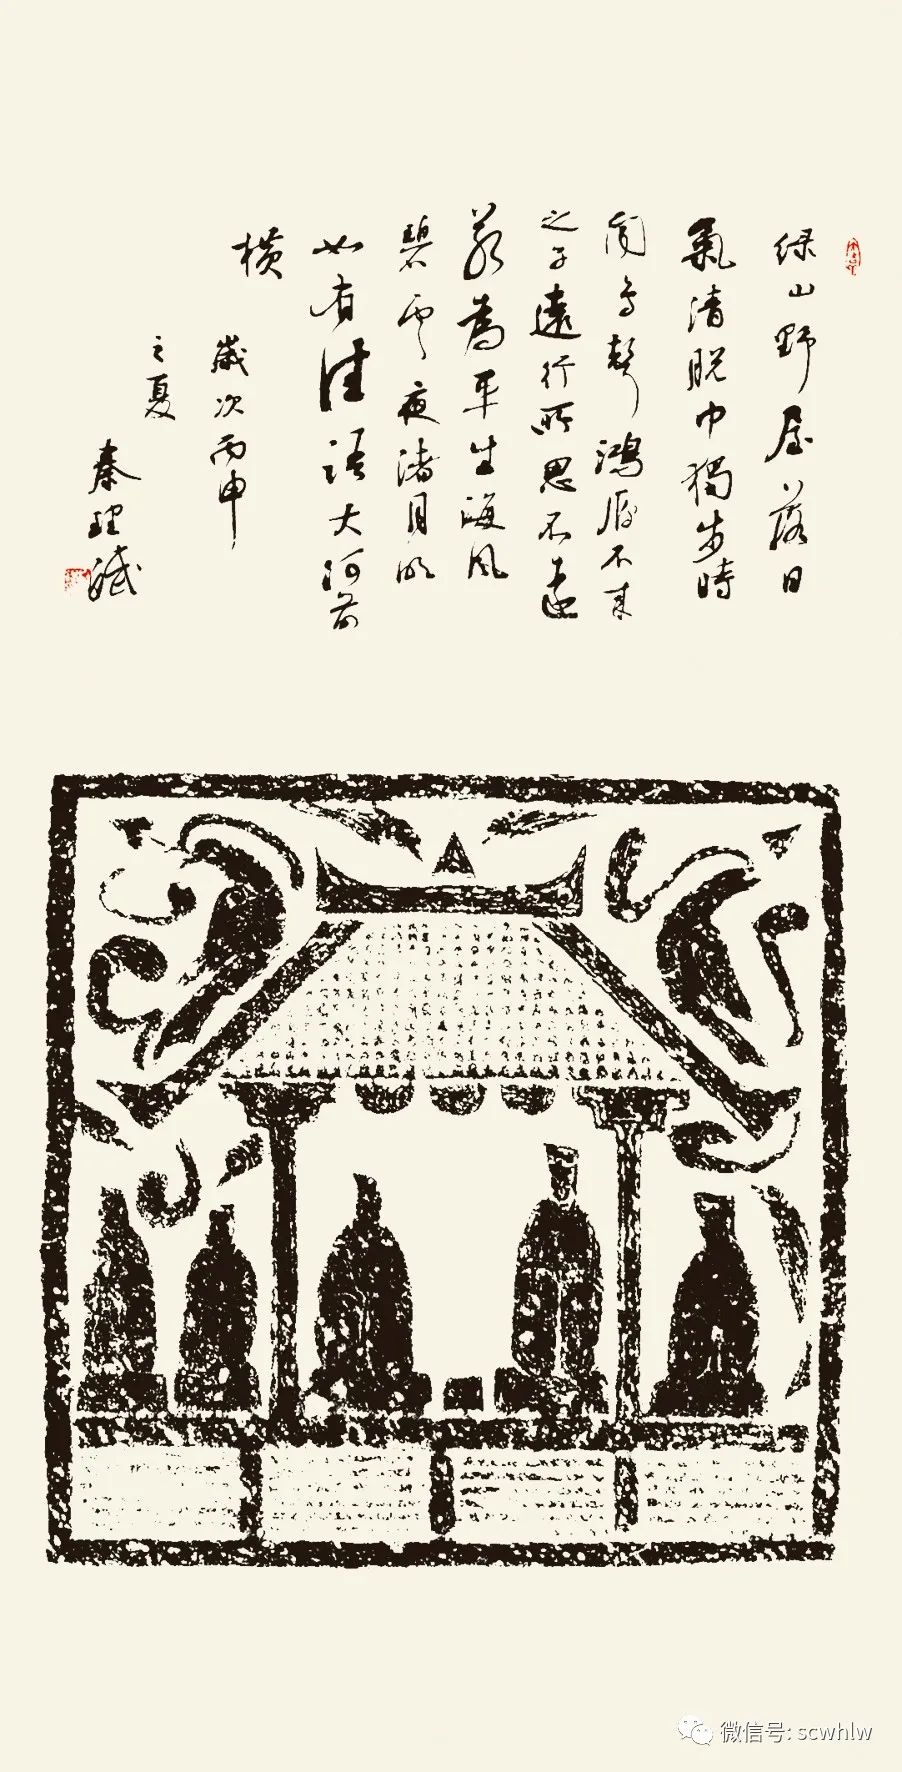 绿山野屋落日
氣清脱巾獨步時
闻鸟聲鴻雁不来
之子遠行所思不遠
若為平生海风
碧雲夜渚月明
如有佳语大河前
横
歲次丙申
之夏
秦理斌
微信号: scwhlw